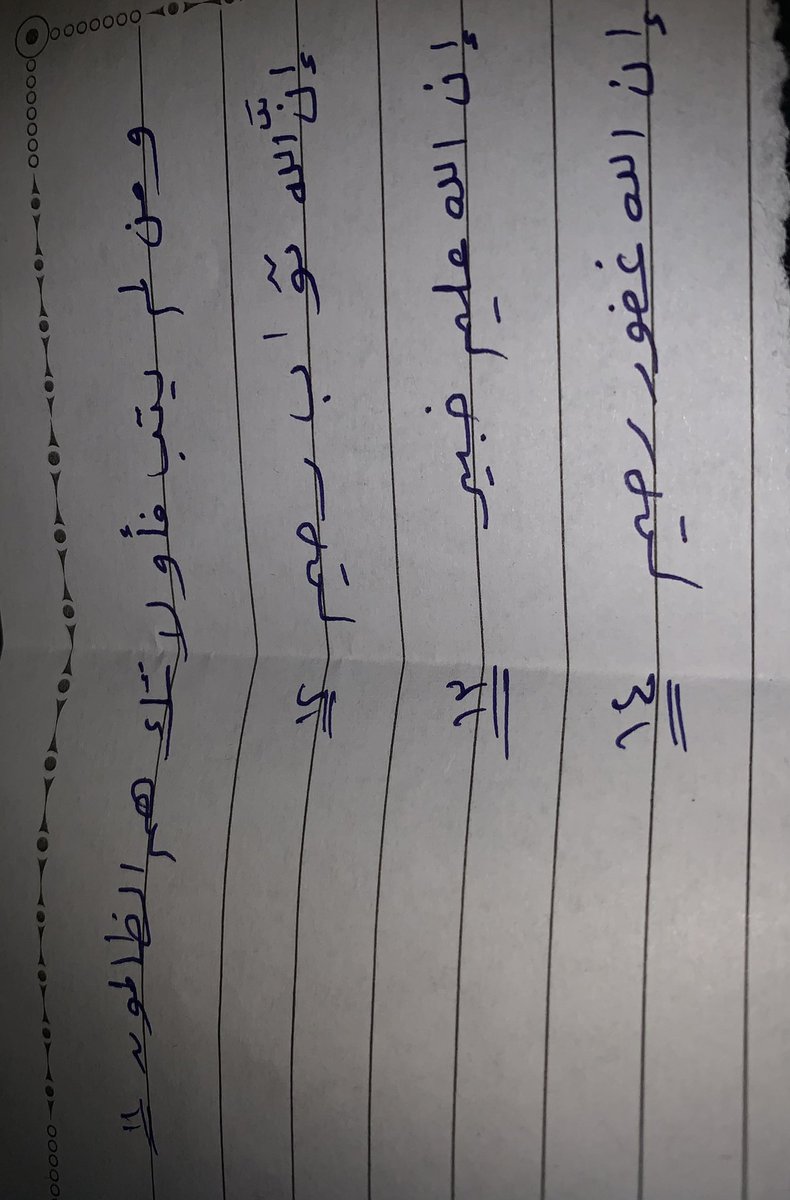 ومن لم يتب فأولائك هم الظالمون ١١
إنّ الله توّاب رحيم ١٢
إن الله عليم خبير ١٣
إن الله غفور رحيم ١٤